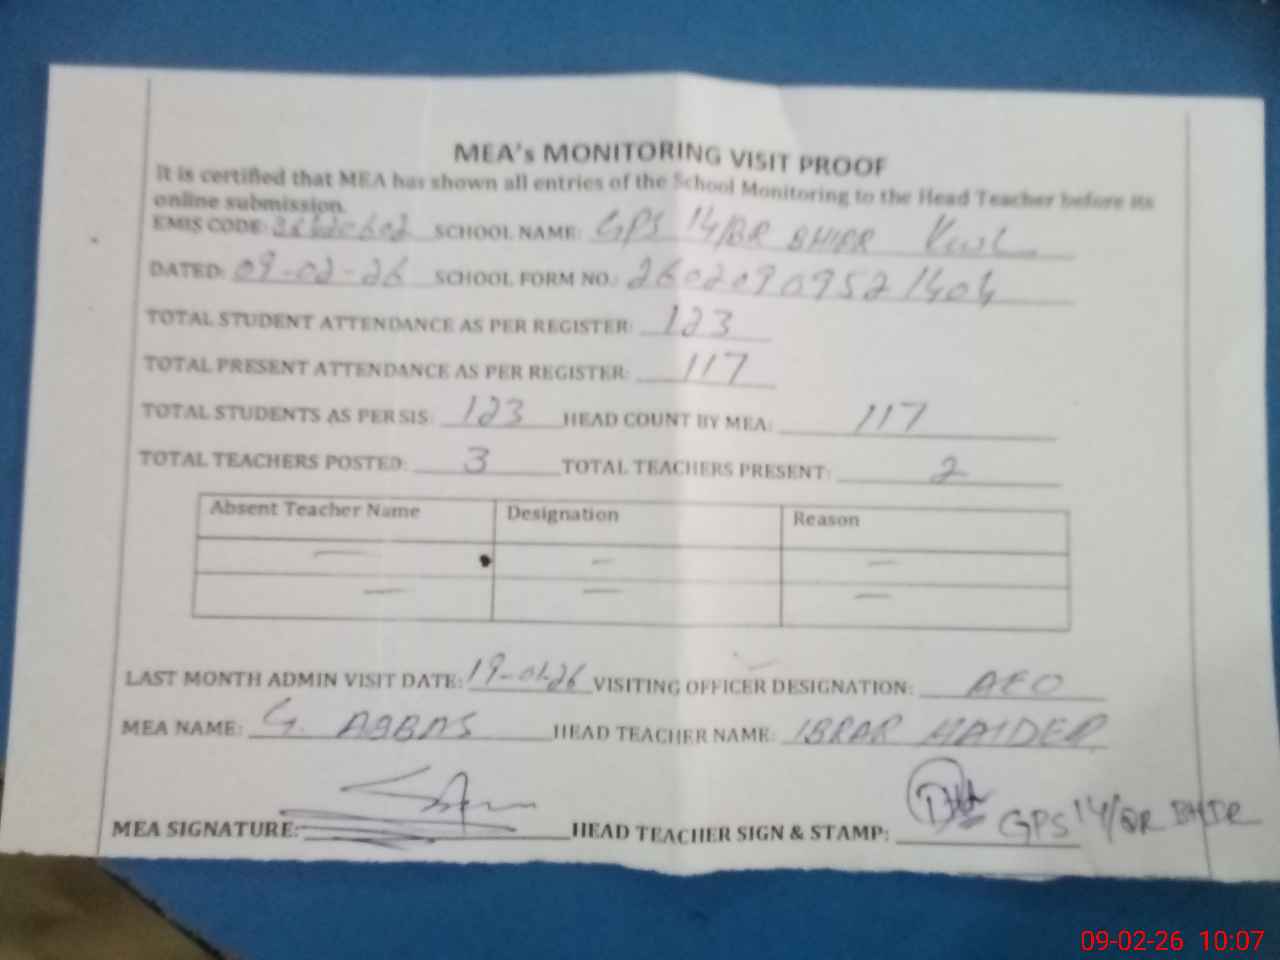 MEA's MONITORING VISIT PROOF
It is certified that MEA has shown all entries of the School Monitoring to the Head Teacher before its
online submission.
EMIS CODE: SCHOOL NAME: GPS 14/BR
DATED: 09-02-26 SCHOOL FORM NO.: 26020909521404
TOTAL STUDENT ATTENDANCE AS PER REGISTER: 123
TOTAL PRESENT ATTENDANCE AS PER REGISTER: 117
TOTAL STUDENTS AS PER SIS: 123 HEAD COUNT BY MEA: 117
TOTAL TEACHERS POSTED: 3 TOTAL TEACHERS PRESENT: 2
Absent Teacher Name Designation Reason
— — —
— — —
LAST MONTH ADMIN VISIT DATE: 19-01-26 VISITING OFFICER DESIGNATION: AEO
MEA NAME: G. ABBAS HEAD TEACHER NAME: IBRAR HAIDER
MEA SIGNATURE: HEAD TEACHER SIGN & STAMP: GPS 14/BR
09-02-26 10:07